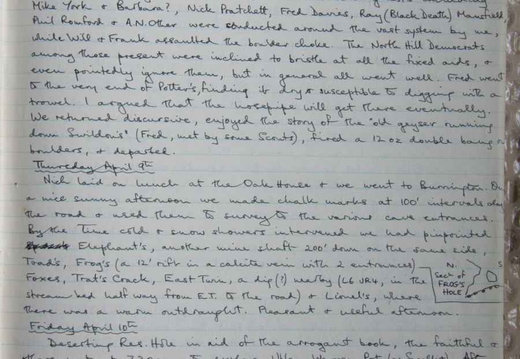 Mike York & Barbara?, Nick Pratchett, Fred Davies, Ray (Black Death) Mansfield
Phil Romford & A.N. Other were conducted around the vast system by me,
while Will & Frank assaulted the boulder choke. The North Hill Democrats
among those present were inclined to bristle at all the fixed aids, &
even pointedly ignore them, but in general all went well. Fred went
to the very end of Potter's, finding it dry & susceptible to digging with a
trowel. I argued that the hosepipe will get there eventually.
We returned discursive, enjoyed the story of the 'old geyser running
down Swildon's' (Fred, met by some Scouts), fired a 12 oz double bang on
boulders, & departed.
Thursday April 9th
Nick laid on lunch at the Oak House & we went to Burrington. On
a nice sunny afternoon we made chalk marks at 100' intervals along
the road & used them to survey to the various cave entrances.
By the time cold & snow showers intervened we had pinpointed
Elephant's, another mine shaft 200' down on the same side,
Toad's, Frog's (a 12' rift in a calcite vein with 2 entrances)
Foxes, Trat's Crack, East Twin, a dig(?) nearby (L6 UR4, in the
stream bed half way from E.T. to the road) & Lionel's, where
there was a warm outdraught. Pleasant & useful afternoon.
N. S
Sect of
FROG'S
HOLE
Friday April 10th
Deserting Res. Hole in aid of the arrogant book, the faithful